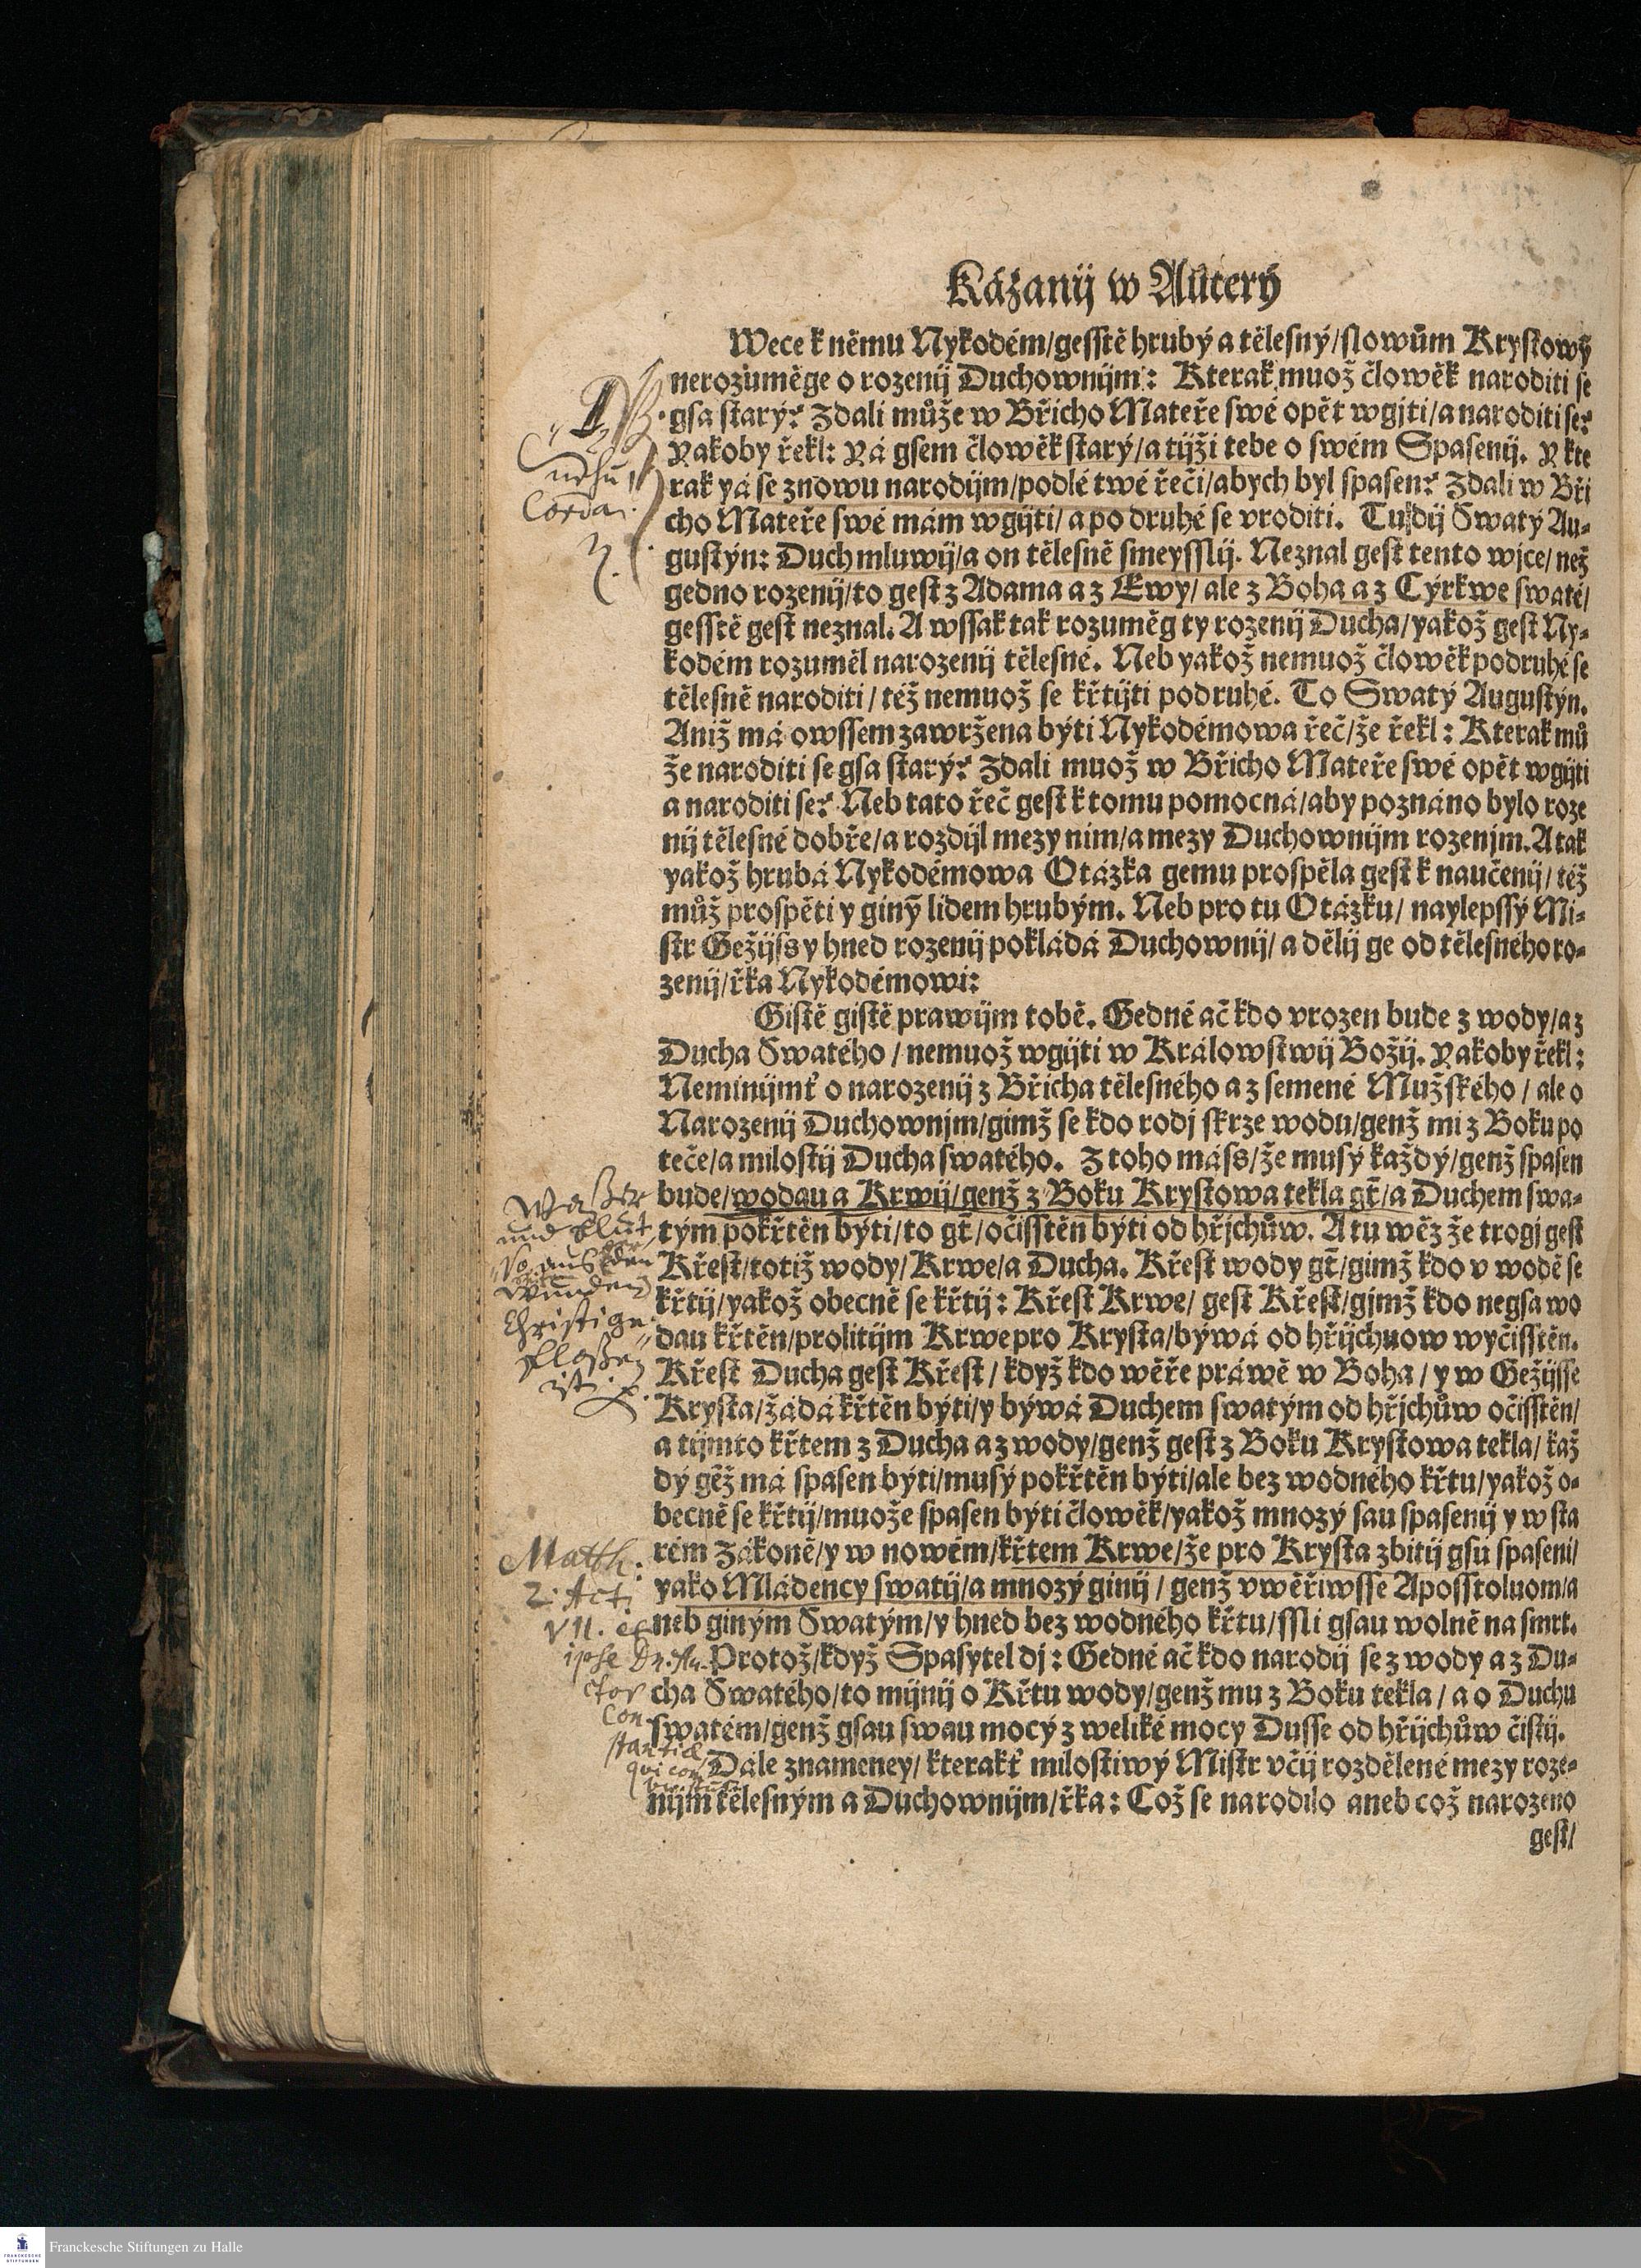 Kázanij w Auterý
Wece k němu Nykodém/gesstě hrubý a tělesný/slowům Krystowý̄
nerozuměge o rozenij Duchownijm: Kterak muož člowěk naroditi se
gsa starý? Zdali může w Břicho Mateře swé opět wgjti/a naroditi se?
Yakoby řekl: Yá gsem člowěk starý/a tijži tebe o swém Spasenij. Y kte
rak yá se znowu narodijm/podlé twé řeči/abych byl spasen? Zdali w Bři
cho Mateře swé mám wgijti/a po druhé se vroditi. Tu dij Swatý Au-
gustýn: Duch mluwij/a on tělesně smeysslij. Neznal gest tento wjce/než
gedno rozenij/to gest z Adama a z Ewy/ale z Boha a z Cýrkwe swaté/
gesstě gest neznal. A wssak tak rozuměg ty rozenij Ducha/yakož gest Ny-
kodém rozuměl narozenij tělesné. Neb yakož nemuož člowěk podruhé se
tělesně naroditi/též nemuož se křtijti podruhé. To Swatý Augustýn.
Aniž má owssem zawržena býti Nykodémowa řeč/že řekl: Kterak mů
že naroditi se gsa starý? Zdali muož w Břicho Mateře swé opět wgijti
a naroditi se? Neb tato řeč gest k tomu pomocná/aby poznáno bylo roze
nij tělesné dobře/a rozdijl mezy nim/a mezy Duchownijm rozenjm. A tak
yakož hrubá Nykodémowa Otázka gemu prospěla gest k naučenij/též
můž prospěti y giný̄ lidem hrubým. Neb pro tu Otázku/naylepssý Mi-
str Gežijss y hned rozenij pokládá Duchownij/a dělij ge od tělesného ro-
zenij/řka Nykodémowi:
Gistě gistě prawijm tobě. Gedné ač kdo vrozen bude z wody/a z
Ducha Swatého/nemuož wgijti w Králowstwij Božij. Yakoby řekl:
Neminijmť o narozenij z Břicha tělesného a z semené Mužského/ale o
Narozenij Duchownjm/gimž se kdo rodj skrze wodu/genž mi z Boku po
teče/a milostij Ducha swatého. Z toho máss/že musý každý/genž spasen
bude/wodau a Krwij/genž z Boku Krystowa tekla gt̄/a Duchem swa-
tým pokřtěn býti/to gt̄/očisstěn býti od hřjchůw. A tu wěz že trogj gest
Křest/totiž wody/Krwe/a Ducha. Křest wody gt̄/gimž kdo v wodě se
křtij/yakož obecně se křtij: Křest Krwe/gest Křest/gjmž kdo negsa wo
dau křtěn/prolitijm Krwe pro Krysta/býwá od hřijchuow wyčisstěn.
Křest Ducha gest Křest/když kdo wěře práwě w Boha/y w Gežijsse
Krysta/žádá křtěn býti/y býwá Duchem swatým od hřjchůw očisstěn/
a tijmto křtem z Ducha a z wody/genž gest z Boku Krystowa tekla/kaž
dý gěž má spasen býti/musý pokřtěn býti/ale bez wodného křtu/yakož o-
becně se křtij/muože spasen býti člowěk/yakož mnozý sau spasenij y w sta
rém Zákoně/y w nowém/křtem Krwe/že pro Krysta zbitij gsú spaseni/
yako Mládency swatij/a mnozý ginij/genž vwěřiwsse Aposstoluom/a
neb giným Swatým/y hned bez wodného křtu/ssli gsau wolně na smrt.
Protož/když Spasytel dj: Gedné ač kdo narodij se z wody a z Du-
cha Swatého/to mijnij o Křtu wody/genž mu z Boku tekla/a o Duchu
swatém/genž gsau swau mocý z weliké mocy Dusse od hřijchůw čistij.
Dále znameney/kterakť milostiwý Mistr včij rozdělené mezy roze-
nijm tělesným a Duchownijm/řka: Což se narodilo aneb což narozeno
gest/
Waßer
und blut
so aus den
Wunden
Christi ge-
floßen
ist
Matth.
2. Act.
VII. et
ipse Dn. Au-
ctor
Con
stantiæ
Franckesche Stiftungen zu Halle